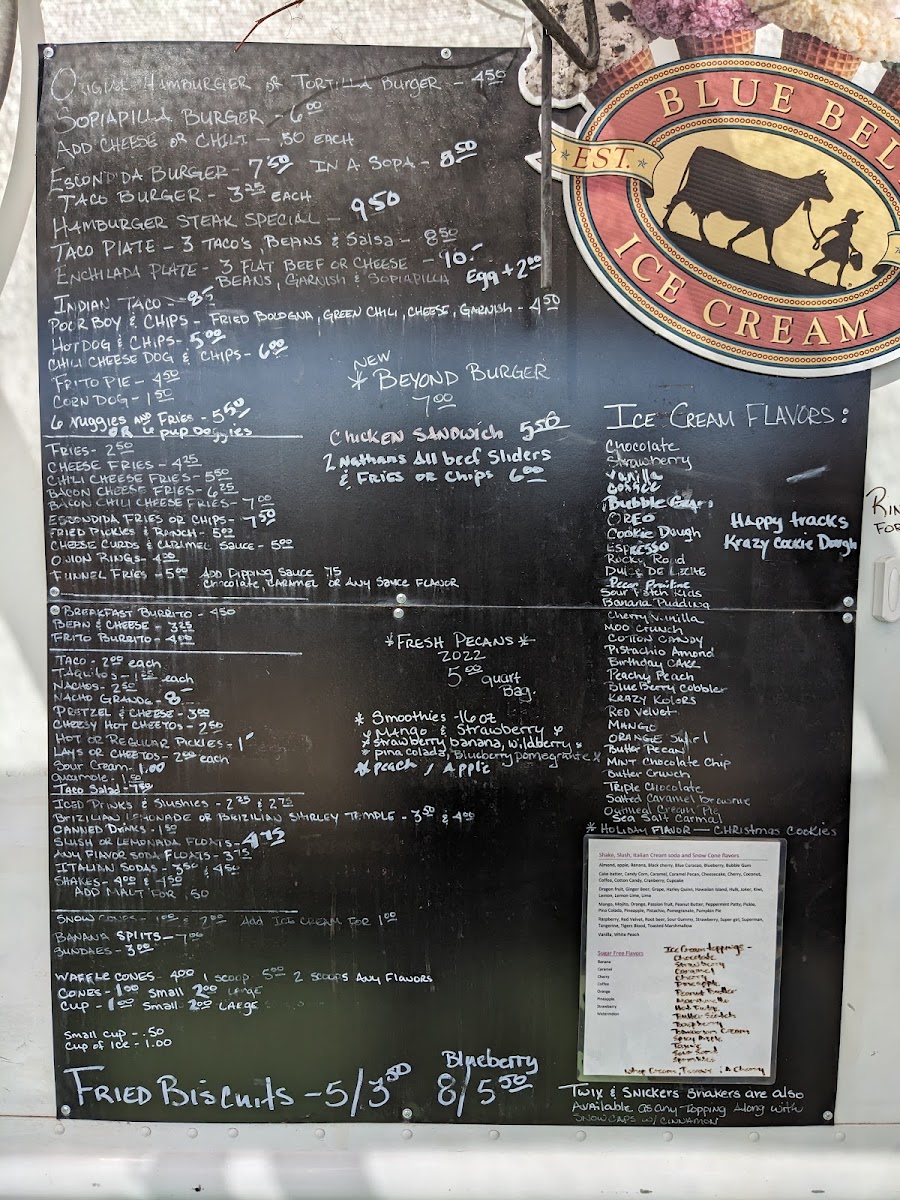 Original Hamburger or Tortilla Burger - 4.50
Sopiapilla Burger - 6.00
Add Cheese or Chili - .50 each
Escondida Burger - 7.50 in a Sopa - 8.50
Taco Burger - 3.25 each
Hamburger Steak Special - 9.50
Taco Plate - 3 Taco's, Beans & Salsa - 8.50
Enchilada Plate - 3 Flat Beef or Cheese - 10.-
Beans, Garnish & Sopiapilla Egg + 2.00
Indian Taco - 8.-
Poor Boy & Chips - Fried Bologna, Green Chili, Cheese, Garnish - 4.50
Hotdog & Chips - 5.00
Chili Cheese Dog & Chips - 6.00
Frito Pie - 4.50
Corn Dog - 1.50
6 Nuggies and Fries - 5.50
or 6 pup Doggies
New
* Beyond Burger
7.00
Chicken Sandwich 5.50
2 Nathans All beef Sliders
& Fries or Chips 6.00
Fries - 2.50
Cheese Fries - 4.25
Chili Cheese Fries - 5.50
Bacon Cheese Fries - 6.25
Bacon Chili Cheese Fries - 7.00
Escondida Fries or Chips - 7.50
Fried Pickles & Ranch - 5.00
Cheese Curds & Caramel Sauce - 5.00
Onion Rings - 4.00
Funnel Fries - 5.00 Add Dipping Sauce .75
Chocolate, Caramel or Any Sauce Flavor
Breakfast Burrito - 4.50
Bean & Cheese - 3.25
Frito Burrito - 4.00
* Fresh Pecans *
2022
5.00 quart
Bag.
Taco - 2.00 each
Taquitos - each
Nachos - 2.50
Nacho Grande - 8.-
Pretzel & Cheese - 3.00
Cheesy Hot Cheetos - 2.50
Hot or Regular Pickles - 1.-
Lays or Cheetos - 2.00 each
Sour Cream - 1.00
Guacamole - 1.50
Taco Salad - 7.50
* Smoothies - 16 oz
* Mango & Strawberry *
* strawberry banana, wildberry *
* pina colada, Blueberry pomegranate *
* peach / Apple
Iced Drinks & Slushies - 2.25 & 2.75
Brizilian Lemonade or Brizilian Shirley Temple - 3.50 & 4.00
Canned Drinks - 1.50
Slush or Lemonada Floats - 4.75
Any Flavor Soda Floats - 3.75
Italian Sodas - 3.50 & 4.50
Shakes - 4.00 &
Add Malt for .50
Snow Cones - 1.00 & 2.00 Add Ice Cream for 1.00
Banana Splits - 7.00
Sundaes - 3.00
Waffle Cones - 4.00 1 scoop 5.00 2 scoops Any Flavors
Cones - 1.00 Small 2.00 Large
Cup - 1.00 Small 2.00 Large
Small cup - .50
Cup of Ice - 1.00
Fried Biscuits - 5/3.00 Blueberry 8/5.50
BLUE BEL
EST.
ICE CREAM
Ice Cream Flavors:
Chocolate
Strawberry
Vanilla
Coffee
Bubble Gum
Oreo
Cookie Dough
Espresso
Rocky Road
Dulce De Leche
Pecan Praline
Sour Patch Kids
Banana Pudding
Cherry Vanilla
Moo Crunch
Cotton Candy
Pistachio Almond
Birthday Cake
Peachy Peach
BlueBerry Cobbler
Krazy Kolors
Red Velvet
Mango
Orange Swirl
Butter Pecan
Mint Chocolate Chip
Butter Crunch
Triple Chocolate
Salted Caramel Brownie
Oatmeal Cream Pie
Sea Salt Carmal
* Holiday Flavor — Christmas Cookies
Happy tracks
Krazy Cookie Dough
Shake, Slush, Italian Cream soda and Snow Cone flavors
Almond, apple, Banana, Black cherry, Blue Curacao, Blueberry, Bubble Gum
Cake batter, Candy Corn, Caramel, Caramel Pecan, Cheesecake, Cherry, Coconut,
Coffee, Cotton Candy, Cranberry, Cupcake
Dragon fruit, Ginger Beer, Grape, Harley Quinn, Hawaiian Island, Hulk, Joker, Kiwi,
Lemon, Lemon Lime, Lime
Mango, Mojito, Orange, Passion fruit, Peanut Butter, Peppermint Patty, Pickle,
Pina Colada, Pineapple, Pistachio, Pomegranate, Pumpkin Pie
Raspberry, Red Velvet, Root beer, Sour Gummy, Strawberry, Super girl, Superman,
Tangerine, Tigers Blood, Toasted Marshmallow
Vanilla, White Peach
Sugar Free Flavors
Banana
Caramel
Cherry
Coffee
Orange
Pineapple
Strawberry
Watermelon
Ice Cream toppings -
Chocolate
Strawberry
Caramel
Cherry
Pineapple
Peanut Butter
Marshmallow
Hot Fudge
Butter Scotch
Raspberry
Spicy Apple
Sprinkles
Whip Cream, & A Cherry
Twix & Snickers Shakers are also
Available as any topping along with
Snowcaps w/ cinnamon